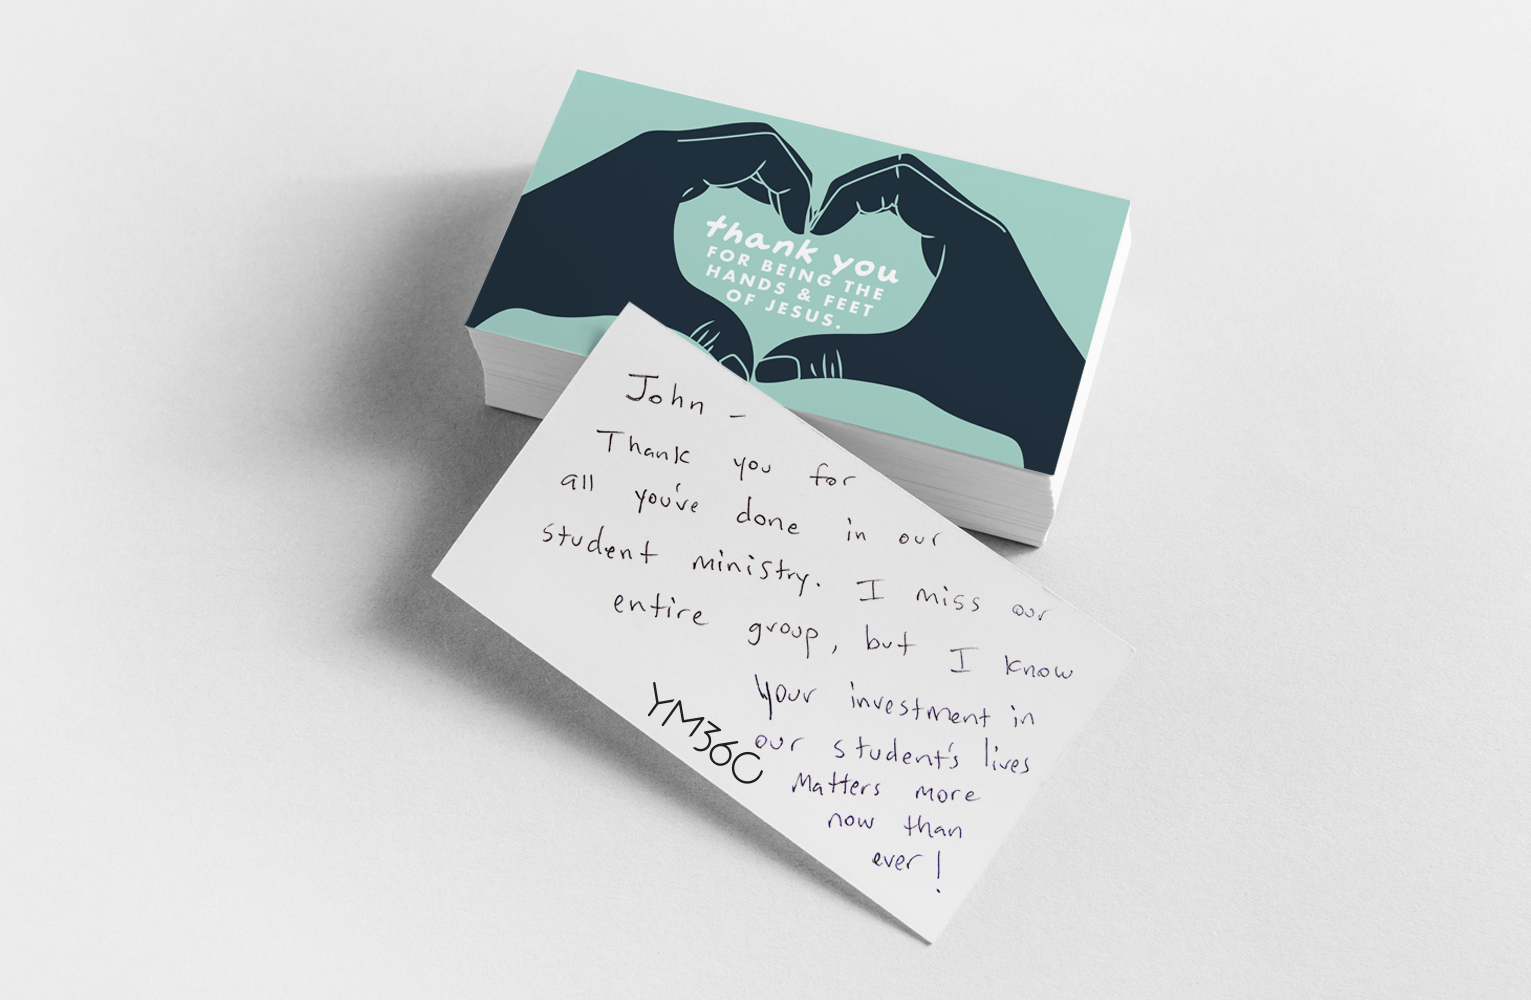 thank you
FOR BEING THE
HANDS & FEET
OF JESUS.
John –
Thank you for
all you've done in our
student ministry. I miss our
entire group, but I know
your investment in
our student's lives
matters more
now than
ever!
YM360